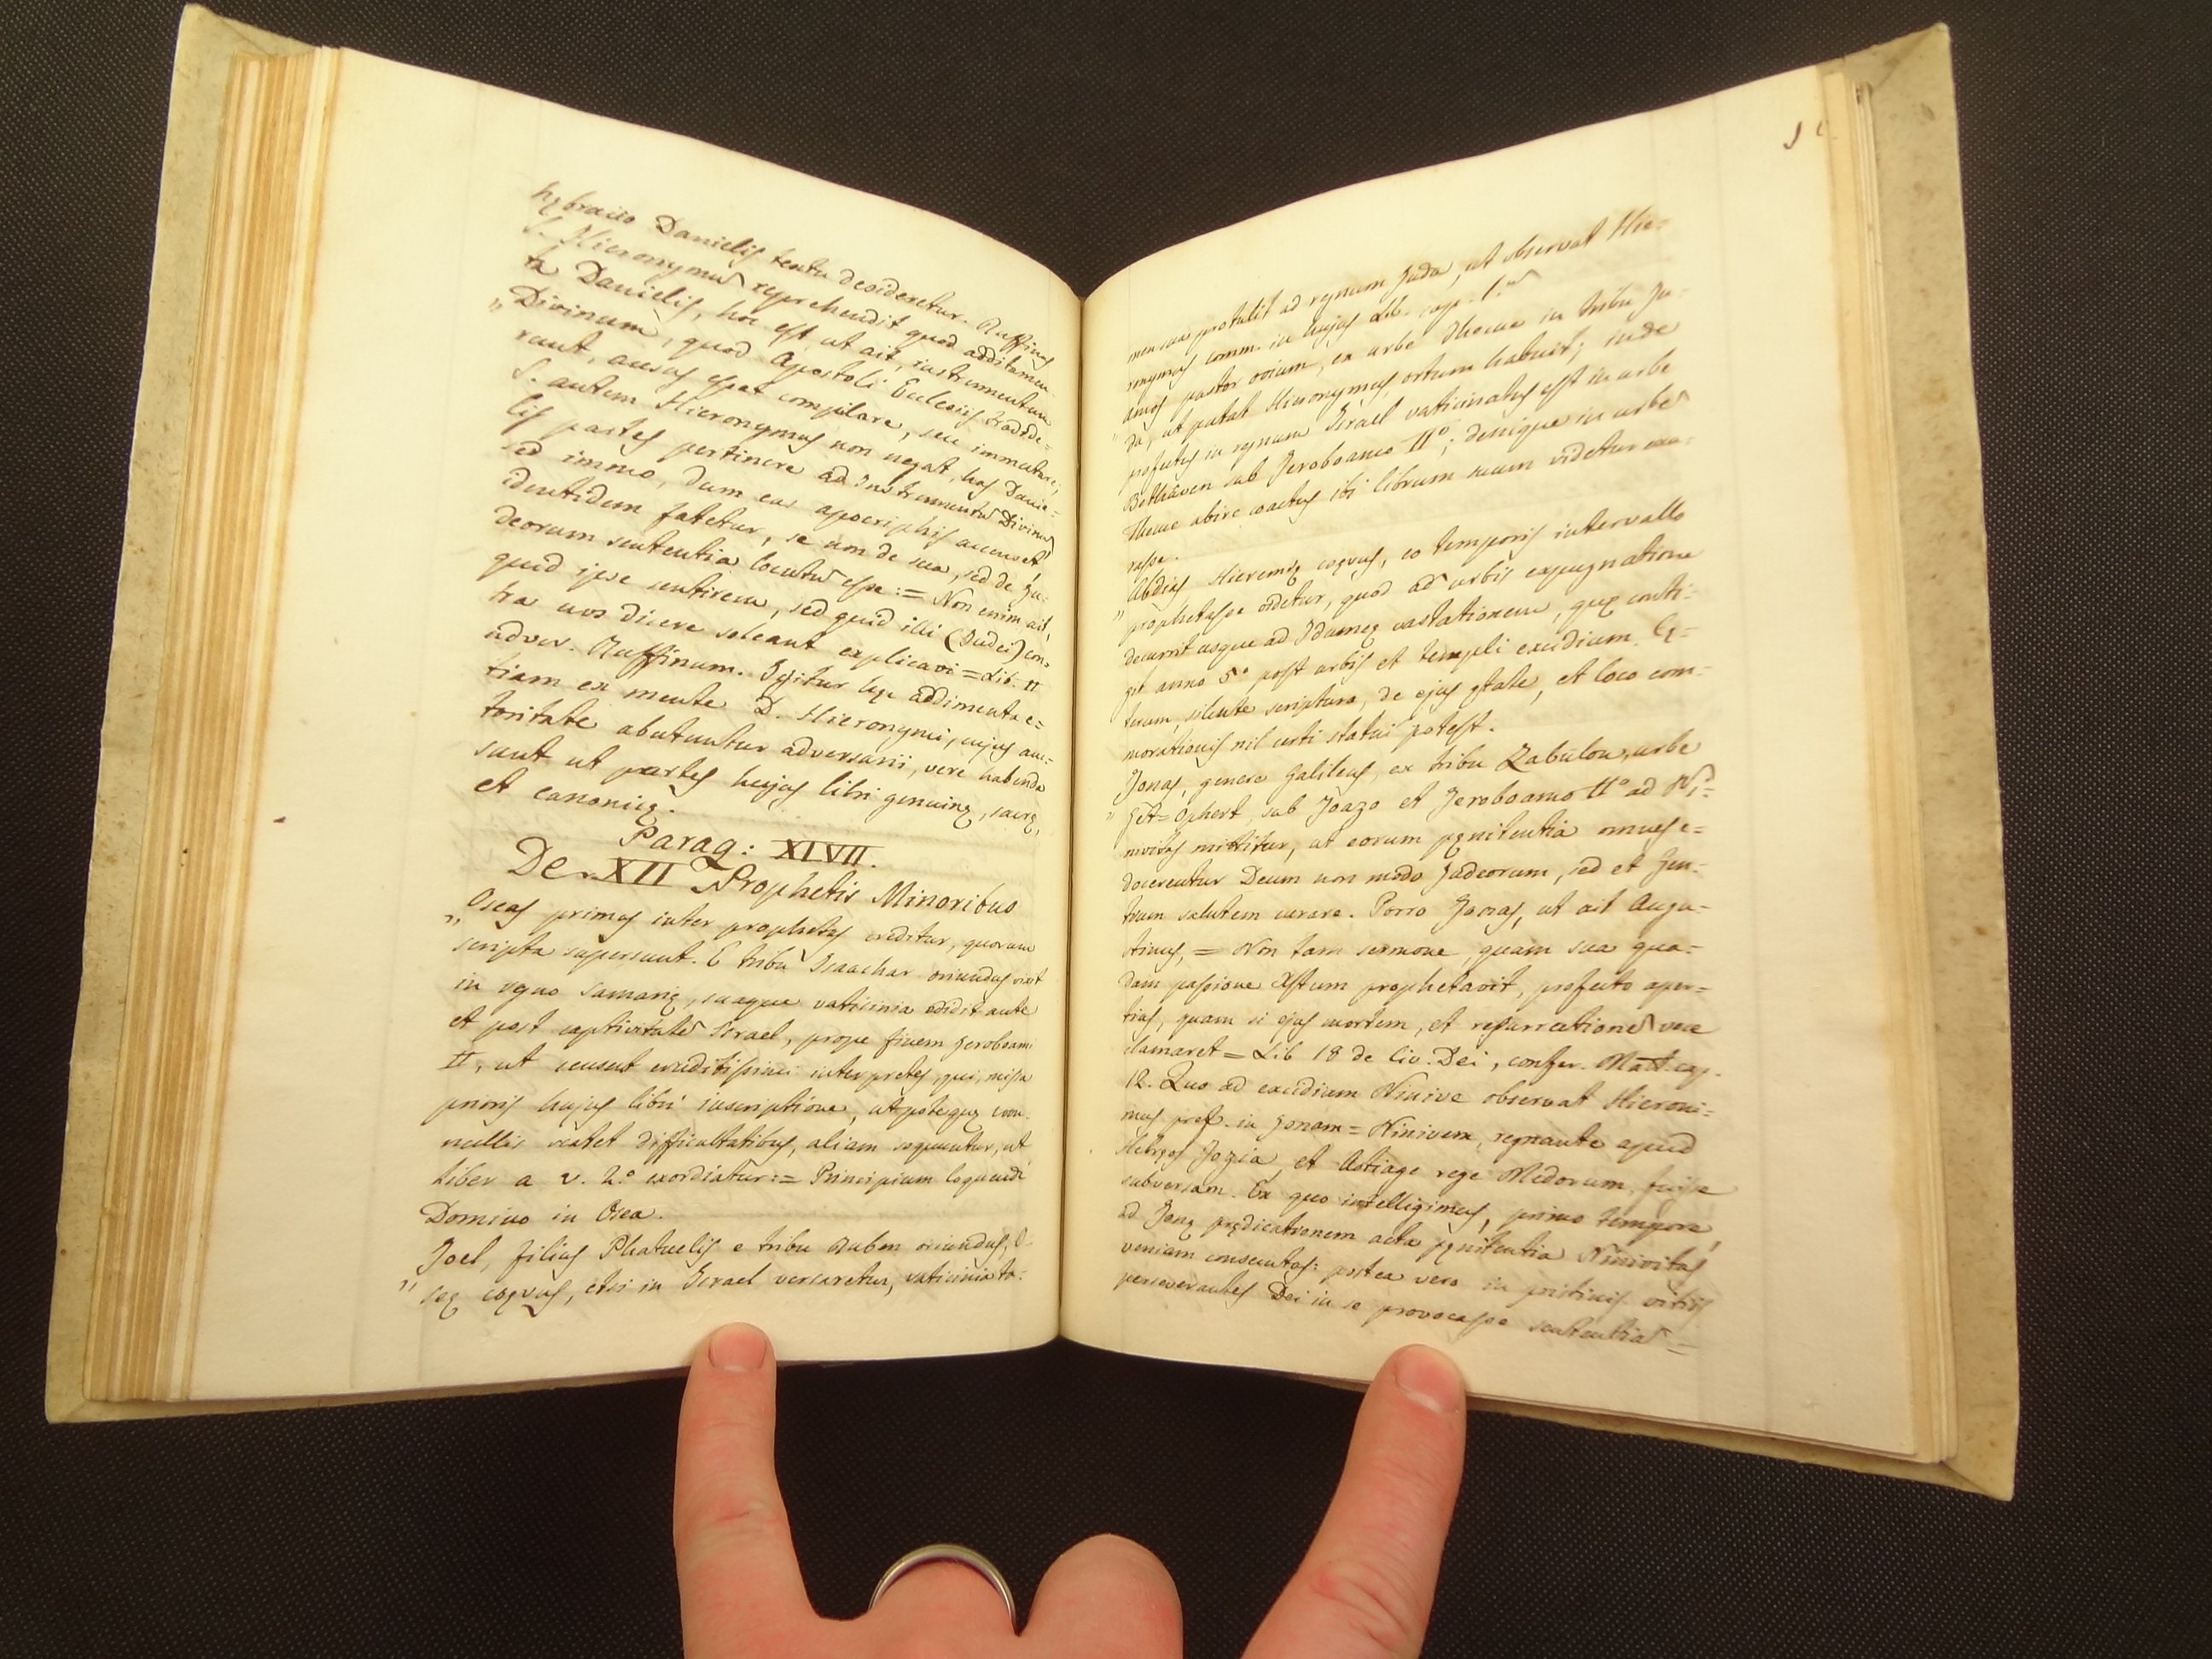 hębraico Danielis textu desideretur. Ruffinus
S. Hieronymũ reprehendit quod additamen
ta Danielis, hoc est, ut ait, instrumentum
„ Divinum, quod Apostoli Ecclesiis tradide=
runt, ausus esset compilare, seu immutare;
S. autem Hieronymus non negat, has Danie=
lis partes pertinere ad Instrumentũ Divinũ
sed immo, dum eas apocriphis accenset
identidem fatetur, se non de sua, sed de Ju-
deorum sententia locutũ esse := Non enim ait,
quid ipse sentirem, sed quid illi (Judei) con-
tra nos dicere soleant explicavi = Lib. II
advers. Ruffinum. Igitur hęc addimenta e=
tiam ex mente D. Hieronymi, cujus auc=
toritate abutuntur adversarii, vere habenda
sunt ut partes hujus libri genuinę, sacrę,
et canonicę.
Parag: XLVII.
De XII Prophetis Minoribus
„ Oseas primus inter prophetas creditur, quorum
scripta supersunt. E tribu Isaachar oriundus vixit
in regno Samarię, suaque vaticinia edidit ante
et post captivitatẽ Israel, prope finem Jeroboami
II, ut censent eruditissimi interpretes, qui, missa
prioris hujus libri inscriptione, utpote quę non-
nullis scatet difficultatibus, aliam sequuntur, ut
liber a v. 2.o exordiatur := Principium loquendi
Domino in Osea.
Joel, filius Phatuelis e tribu Ruben oriundus, O-
„ seę coęvus, etsi in Israel versaretur, vaticinia ta-
men sua protulit ad regnum Juda, ut observat Hie=
ronymus comm. in hujus Lib. cap. 1.m
Amos pastor ovium, ex urbe Thecue in tribu Ju-
„ da, ut putat Hieronymus, ortum habuit; inde
profectus in regnum Israel vaticinatus est in urbe
Bethaven sub Jeroboamo IIo; denique in urbẽ
Thecue abire coactus ibi librum suum videtur exa-
rasse.
„ Abdias Hieremię coęvus, eo temporis intervallo
prophetasse videtur, quod ab urbis expugnatione
decurrit usque ad Idumeę vastationem, quę conti-
git anno 5o post urbis et templi excidium. Cę=
terum, silente scriptura, de ejus ętate, et loco com-
morationis nil certi statui potest.
Jonas, genere Galileus, ex tribu Zabulon, urbe
„ Get= Ophert, sub Joazo et Jeroboamo IIo ad Ni=
nivitas mittitur, ut eorum pęnitentia omnes e=
docerentur Deum non modo Judeorum, sed et Gen-
tium salutem curare. Porro Jonas, ut ait Augu-
stinus, = Non tam sermone, quam sua qua=
dam passione Xstum prophetavit, profecto aper=
tius, quam si ejus mortem, et resurrectionẽ voce
clamaret = Lib 18 de Civ. Dei, confer. Matt. cap.
12. Quo ad excidium Ninive observat Hieroni=
mus pref. in Jonam = Ninivem, regnante apud
Hebręos Jozia, et Astiage rege Medorum, fuisse
subversam. Ex quo intelligimus, primo tempore,
ad Jonę prędicationem acta pęnitentia Ninivitas
veniam consecutos: postea vero in pristinis vitiis
perseverantes Dei in se provocasse sententiã =